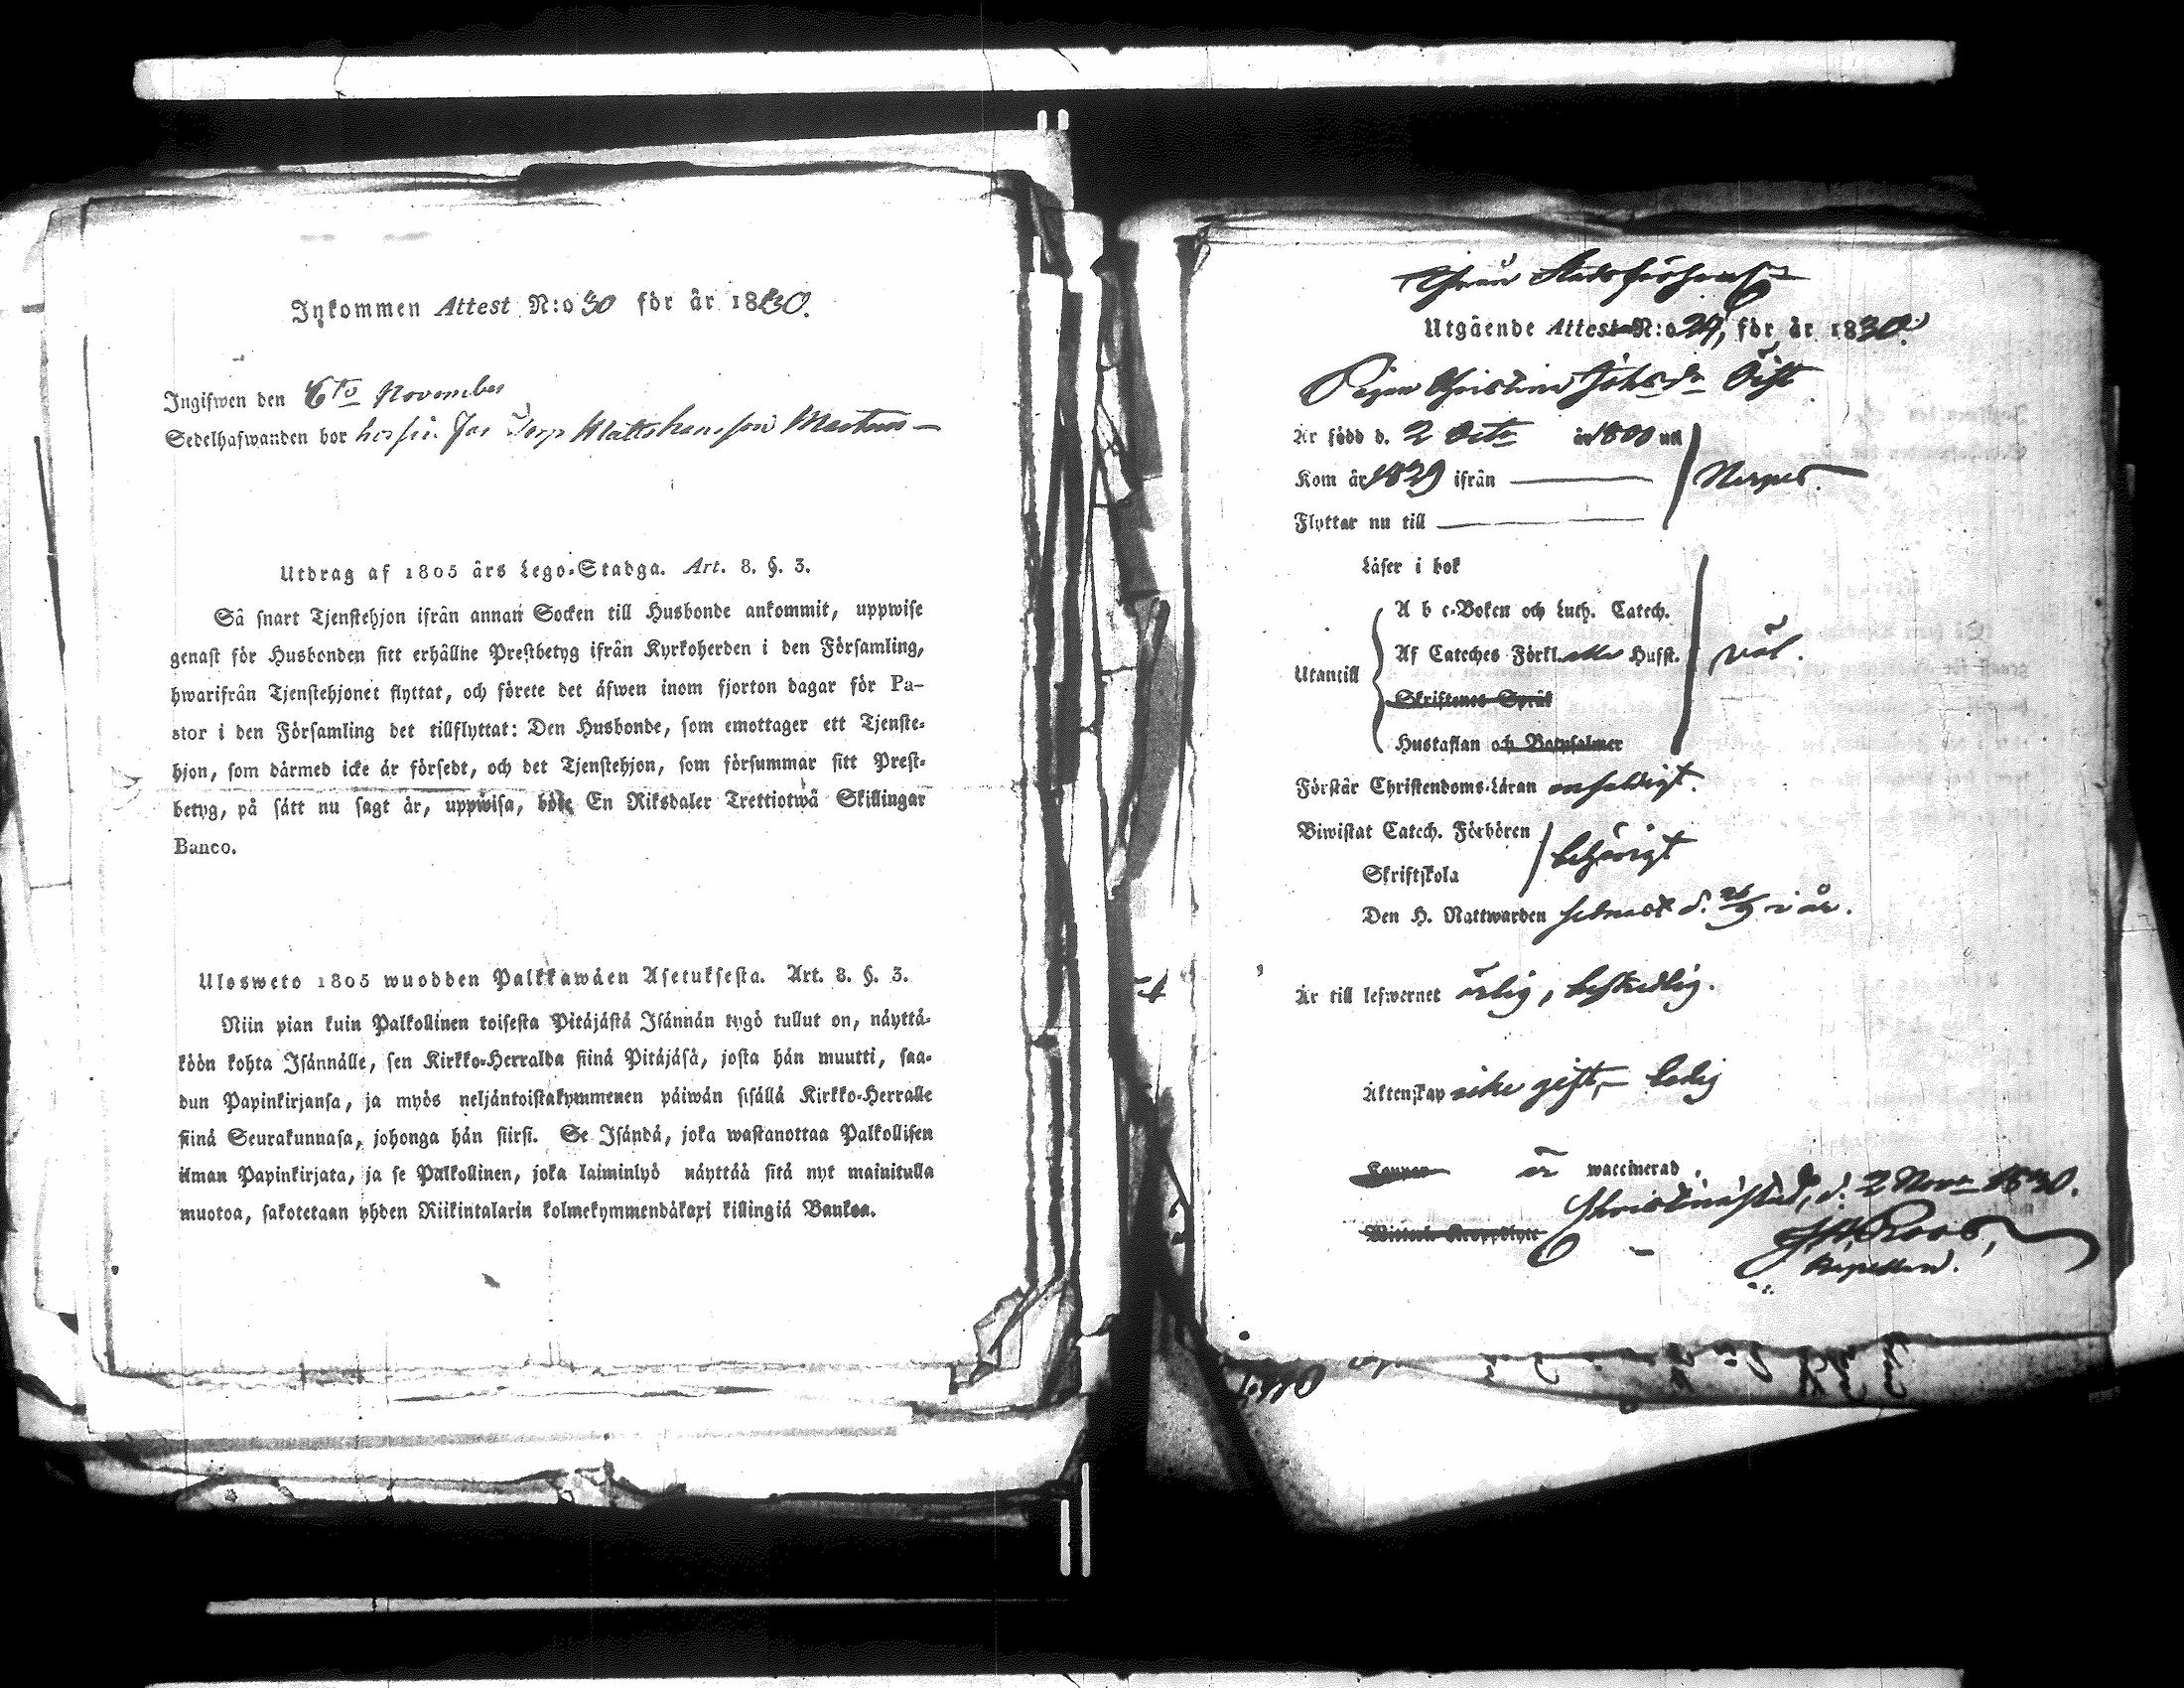 Inkommen Attest N:o 30 för år 1830.
Ingifwen den 6to November
Sedelhafwanden bor hos sin Far Torp Matts Mårtens
Utdrag af 1805 års Lego-Stadga. Art. 8. §. 3.
Så snart Tjenstehjon ifrån annan Socken till Husbonde ankommit, uppwise
genast för Husbonden sitt erhållne Prestbetyg ifrån Kyrkoherden i den Församling,
hwarifrån Tjenstehjonet flyttat, och förete det äfwen inom fjorton dagar för Pa-
stor i den Församling det tillflyttat: Den Husbonde, som emottager ett Tjenste-
hjon, som därmed icke är försedt, och det Tjenstehjon, som försummar sitt Prest-
betyg, på sätt nu sagt är, uppwisa, böte En Riksdaler Trettiotwå Skillingar
Banco.
Ulosweto 1805 wuodden Palkkawäen Asetuksesta. Art. 8. §. 3.
Niin pian kuin Palkollinen toisesta Pitäjästä Isännän tygö tullut on, näyttä-
köön kohta Isännälle, sen Kirkko-Herralda siinä Pitäjäsä, josta hän muutti, saa-
dun Papinkirjansa, ja myös neljäntoistakymmenen päiwän sisällä Kirkko-Herralle
siinä Seurakunnasa, johonga hän siirsi. Se Isändä, joka wastanottaa Palkollisen
ilman Papinkirjata, ja se Palkollinen, joka laiminlyö näyttää sitä nyt mainitulla
muotoa, sakotetaan yhden Riikintalarin kolmekymmendäkaxi killingiä Bankoa.
Från Stads
Utgående Attest N:o 24, för år 1830.
Pigan Christina Johsdr Öist
Är född d. 2 Octr år 1800 uti
Kom år 1829 ifrån
Nerpes.
Flyttar nu till
Läser i bok
A b c-Boken och Luth. Catech.
Af Cateches Förkl. Husst.
väl.
Utantill
Skriftenes Språk
Hustaflan och Botpsalmer
Förstår Christendoms-Läran enfaldigt.
Biwistat Catech. Förhören
behörigt
Skriftskola
Den H. Nattwarden senast d. 26/9 i år.
Är till lefwernet ärlig, beskedlig.
Äktenskap icke gift, ledig
Koppor är waccinerad,
Christinæstad, d. 2 Novr 1830.
J H Roos,
Kapellan.